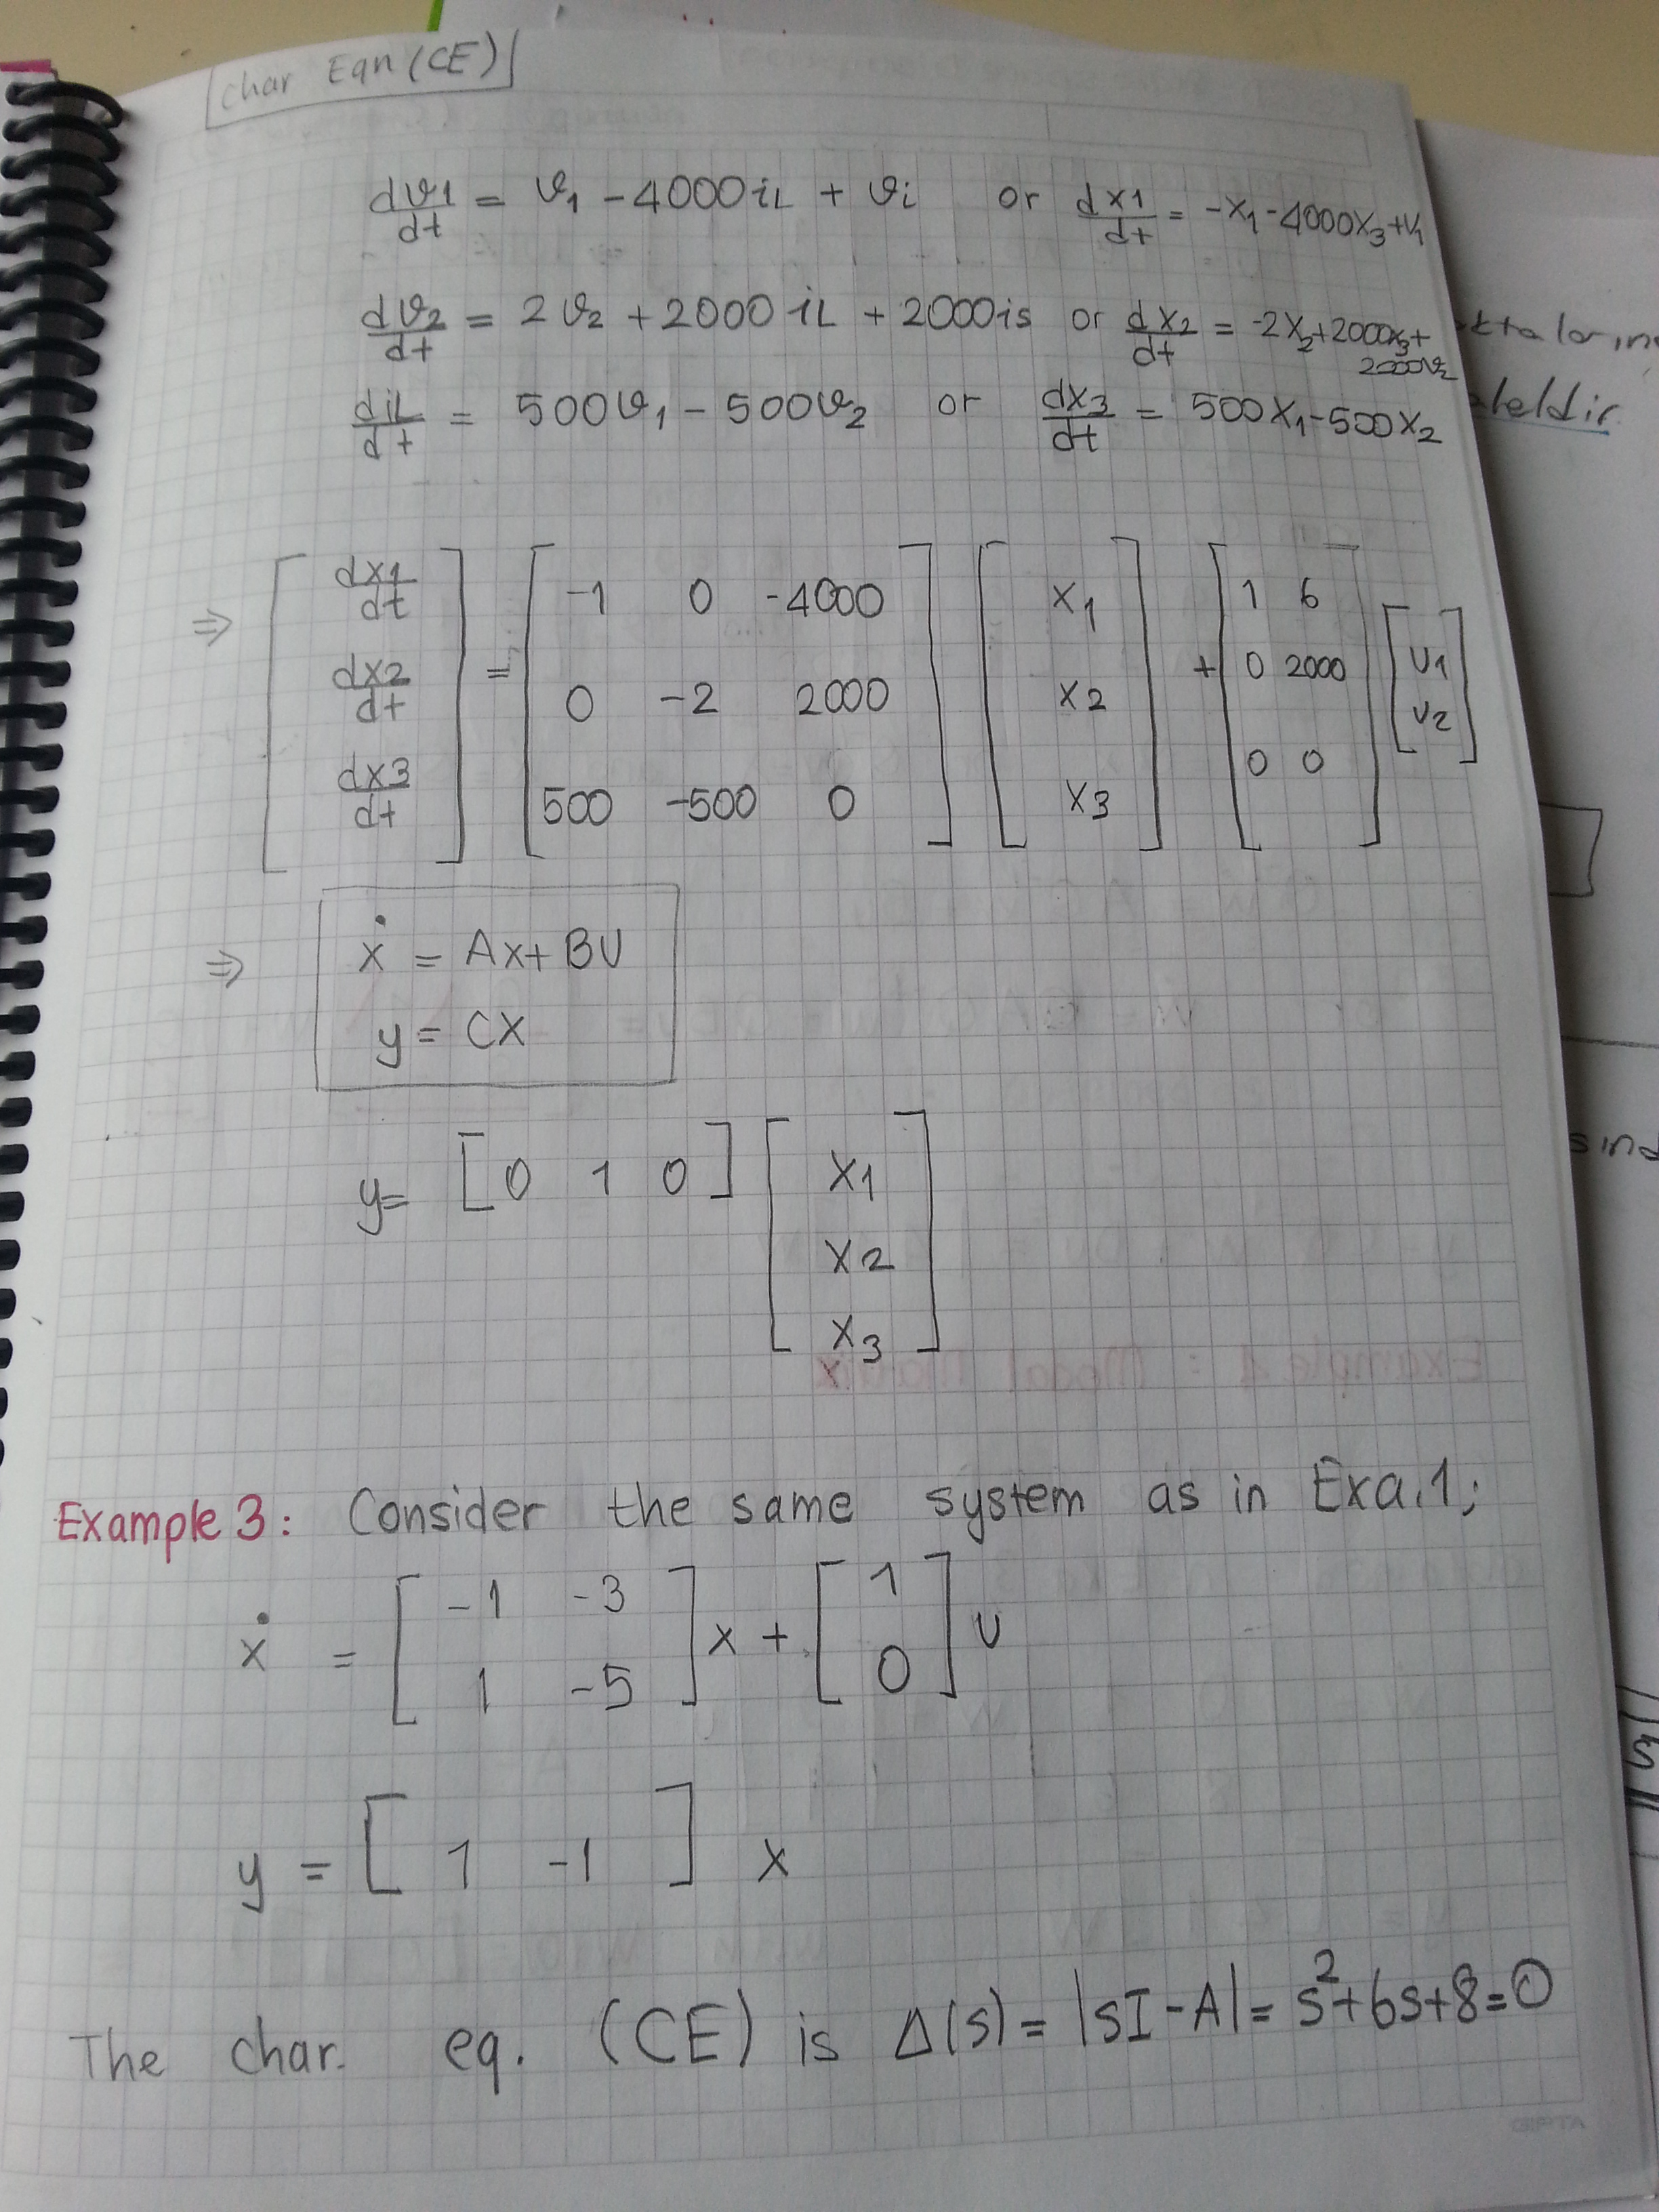 char Eqn (CE)
dv1/dt = v1 - 4000iL + vi or dx1/dt = -x1 - 4000x3 + v1
dv2/dt = 2v2 + 2000iL + 2000is or dx2/dt = -2x2 + 2000x3 +
2000v2
diL/dt = 500v1 - 500v2 or dx3/dt = 500x1 - 500x2
⇒ [dx1/dt dx2/dt dx3/dt] = [-1 0 -4000; 0 -2 2000; 500 -500 0] [x1 x2 x3] + [1 6; 0 2000; 0 0] [U1 U2]
⇒ ẋ = Ax + BU
y = CX
y = [0 1 0] [x1 x2 x3]
Example 3: Consider the same system as in Exa.1;
ẋ = [-1 -3; 1 -5] x + [1; 0] U
y = [1 -1] x
The char. eq. (CE) is Δ(s) = |sI - A| = s²+6s+8=0
GIPTA